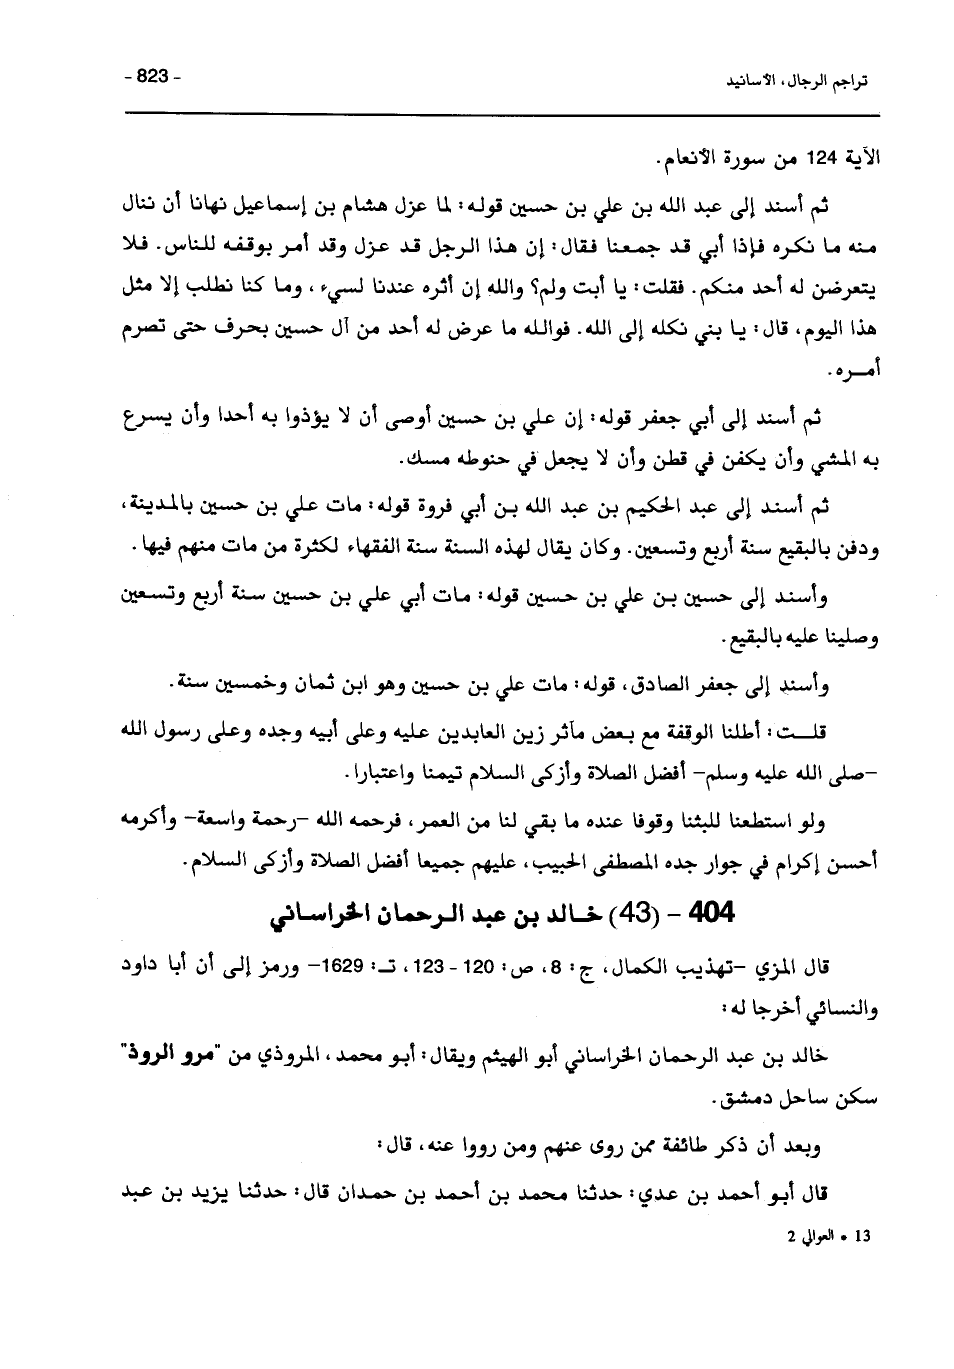 تراجم الرجال، الأسانيد
- 823 -
الآية 124 من سورة الأنعام.
ثم أسند إلى عبد الله بن علي بن حسين قوله: لما عزل هشام بن إسماعيل نهانا أن ننال
منه ما نكره فإذا أبي قد جمعنا فقال: إن هذا الرجل قد عزل وقد أمر بوقفه للناس. فلا
يتعرضن له أحد منكم. فقلت: يا أبت ولم؟ والله إن أثره عندنا لسيء، وما كنا نطلب إلا مثل
هذا اليوم، قال: يا بني نكله إلى الله. فوالله ما عرض له أحد من آل حسين بحرف حتى تصرم
أمره.
ثم أسند إلى أبي جعفر قوله: إن علي بن حسين أوصى أن لا يؤذوا به أحدا وأن يسرع
به المشي وأن يكفن في قطن وأن لا يجعل في حنوطه مسك.
ثم أسند إلى عبد الحكيم بن عبد الله بن أبي فروة قوله: مات علي بن حسين بالمدينة،
ودفن بالبقيع سنة أربع وتسعين. وكان يقال لهذه السنة سنة الفقهاء لكثرة من مات منهم فيها.
وأسند إلى حسين بن علي بن حسين قوله: مات أبي علي بن حسين سنة أربع وتسعين
وصلينا عليه بالبقيع.
وأسند إلى جعفر الصادق، قوله: مات علي بن حسين وهو ابن ثمان وخمسين سنة.
قلت: أطلنا الوقفة مع بعض مآثر زين العابدين عليه وعلى أبيه وجده وعلى رسول الله
-صلى الله عليه وسلم- أفضل الصلاة وأزكى السلام تيمنا واعتبارا.
ولو استطعنا للبثنا وقوفا عنده ما بقي لنا من العمر، فرحمه الله -رحمة واسعة- وأكرمه
أحسن إكرام في جوار جده المصطفى الحبيب، عليهم جميعا أفضل الصلاة وأزكى السلام.
404 - (43) خالد بن عبد الرحمان الخراساني
قال المزي -تهذيب الكمال، ج: 8، ص: 120 - 123، تـ: 1629- ورمز إلى أن أبا داود
والنسائي أخرجا له:
خالد بن عبد الرحمان الخراساني أبو الهيثم ويقال: أبو محمد، المروذي من "مرو الروذ"
سكن ساحل دمشق.
وبعد أن ذكر طائفة ممن روى عنهم ومن رووا عنه، قال:
قال أبو أحمد بن عدي: حدثنا محمد بن أحمد بن حمدان قال: حدثنا يزيد بن عبد
13 * العوالي 2